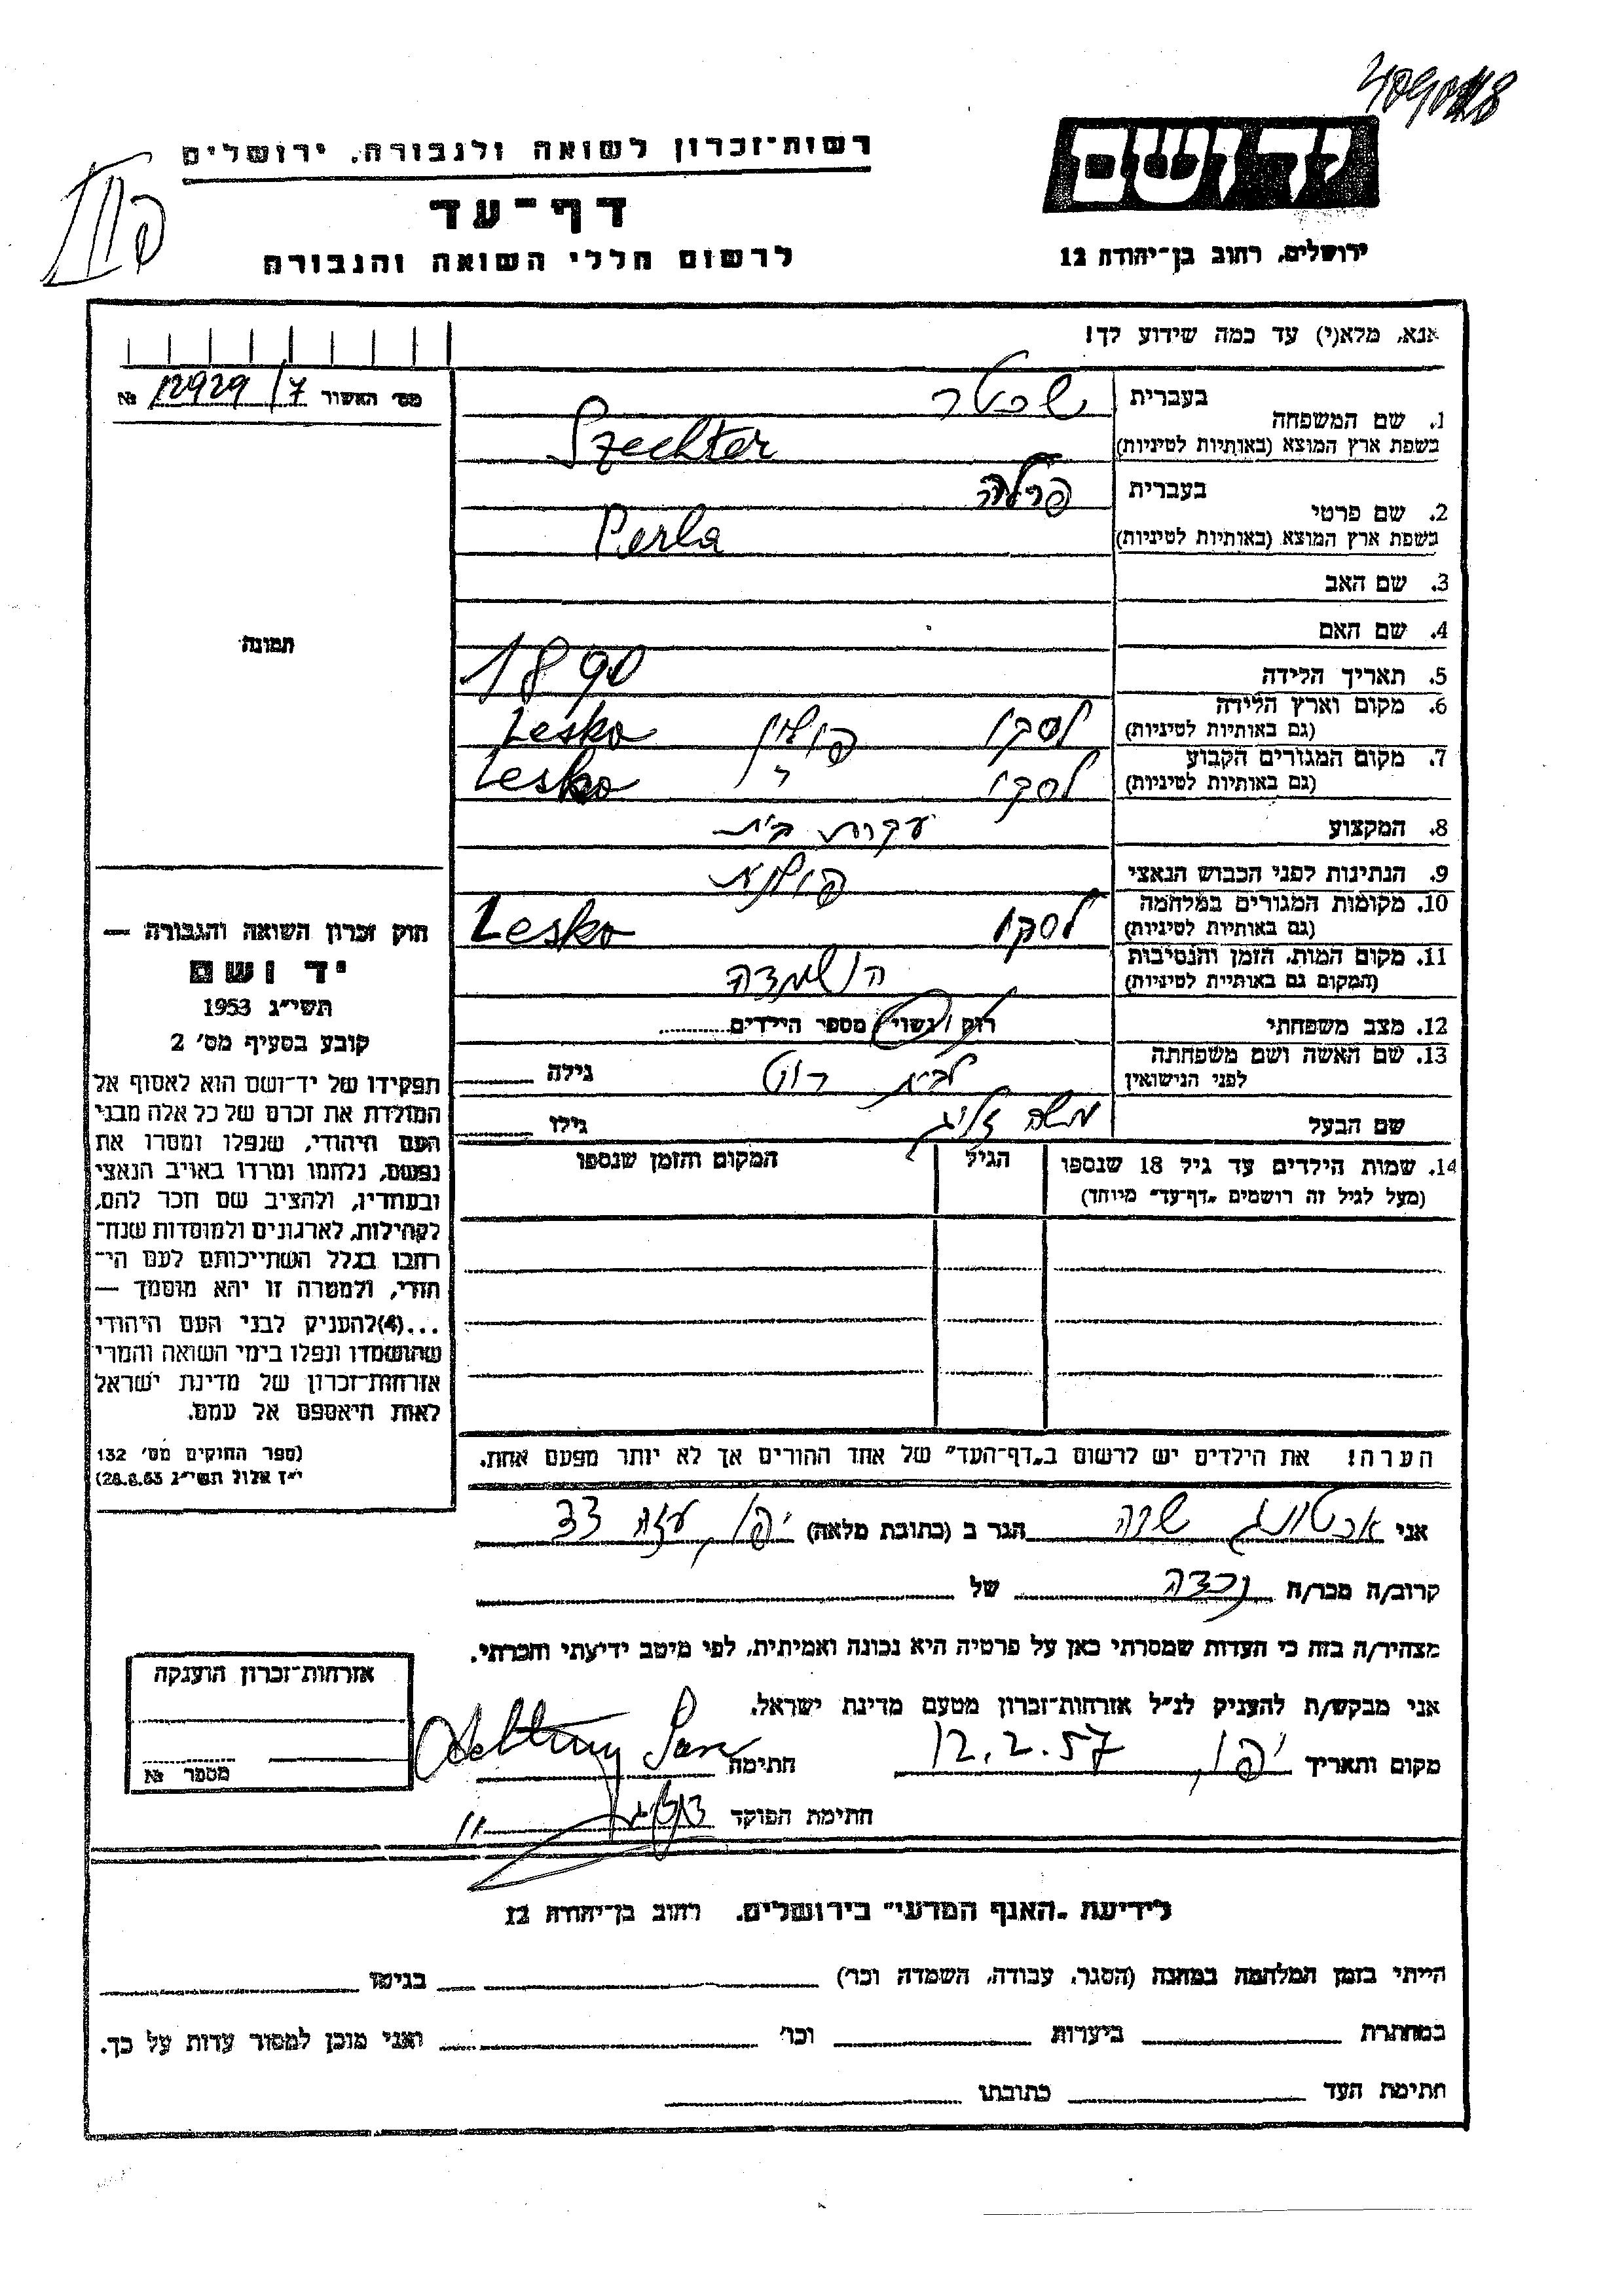 409048
יד ושם
ירושלים, רחוב בן־יהודה 12
רשות־זכרון לשואה ולגבורה, ירושלים
דף־עד
לרשום חללי השואה והגבורה
אנא, מלא(י) עד כמה שידוע לך!
מס׳ האשור 12929/7 №
תמונה
1. שם המשפחה
בעברית שכטר
בשפת ארץ המוצא (באותיות לטיניות) Szechter
2. שם פרטי
בעברית פרלה
בשפת ארץ המוצא (באותיות לטיניות) Perla
3. שם האב
4. שם האם
5. תאריך הלידה 1890
6. מקום וארץ הלידה לסקו פולין Lesko
(גם באותיות לטיניות)
7. מקום המגורים הקבוע לסקו Lesko
(גם באותיות לטיניות)
8. המקצוע עקרת בית
9. הנתינות לפני הכבוש הנאצי פולנית
10. מקומות המגורים במלחמה לסקו Lesko
(גם באותיות לטיניות)
11. מקום המות, הזמן והנסיבות הושמדה
(המקום גם באותיית לטיניות)
12. מצב משפחתי רוק / נשוי / מספר הילדים
13. שם האשה ושם משפחתה לבית גילה
לפני הנישואין
שם הבעל משה זליג גילו
14. שמות הילדים עד גיל 18 שנספו הגיל המקום והזמן שנספו
(מעל לגיל זה רושמים „דף־עד״ מיוחד)
הערה! את הילדים יש לרשום ב„דף־העד״ של אחד ההורים אך לא יותר מפעם אחת.
חוק זכרון השואה והגבורה —
יד ושם
תשי״ג 1953
קובע בסעיף מס׳ 2
תפקידו של יד־ושם הוא לאסוף אל
המולדת את זכרם של כל אלה מבני
העם היהודי, שנפלו ומסרו את
נפשם, נלחמו ומרדו באויב הנאצי
ובעוזריו, ולהציב שם וזכר להם,
לקהילות, לארגונים ולמוסדות שנח־
רבו בגלל השתייכותם לעם הי־
הודי, ולמטרה זו יהא מוסמך —
...(4)להעניק לבני העם היהודי
שהושמדו ונפלו בימי השואה והמרי
אזרחות־זכרון של מדינת ישראל
לאות היאספם אל עמם.
(ספר החוקים מס׳ 132
י״ז אלול תשי״ג 28.8.53)
אני שרה הגר ב (כתובת מלאה) יפו, עזה 33
קרוב/ה מכר/ה נכדה של
מצהיר/ה בזה כי העדות שמסרתי כאן על פרטיה היא נכונה ואמיתית, לפי מיטב ידיעתי והכרתי.
אני מבקש/ת להעניק לנ״ל אזרחות־זכרון מטעם מדינת ישראל.
מקום ותאריך יפו, 12.2.57 חתימה
חתימת הפוקד
אזרחות־זכרון הוענקה
מספר №
לידיעת „האגף המדעי״ בירושלים. רחוב בן־יהודה 12
הייתי בזמן המלחמה במחנה (הסגר, עבודה, השמדה וכר׳) בגיטו
במחתרת ביערות וכר׳ ואני מוכן למסור עדות על כך.
חתימת העד כתובתו